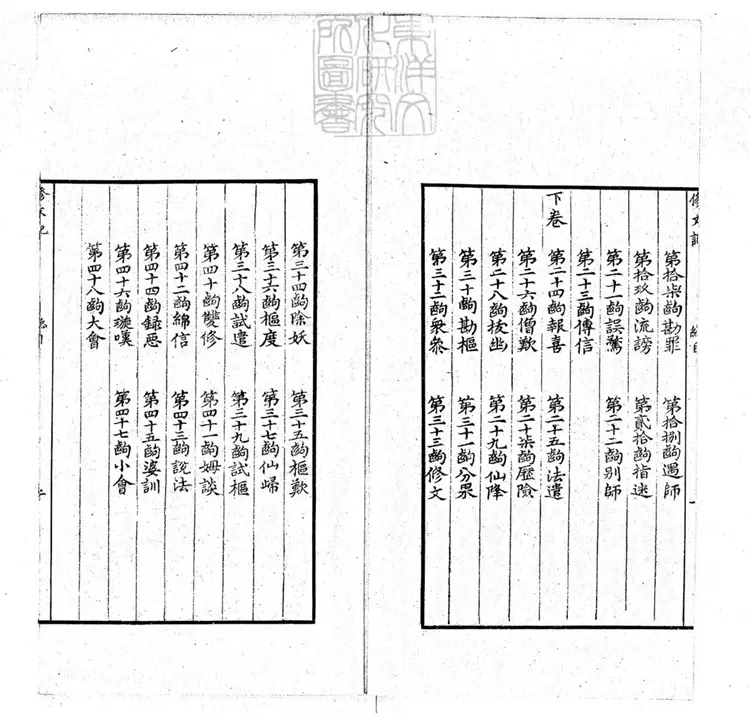 東洋文
化研究
所圖書
修文記
總目
第拾柒齣勘罪　第拾捌齣遇師
第拾玖齣流謗　第貳拾齣指迷
第二十一齣誤鶩　第二十二齣別師
第二十三齣傳信
下卷
第二十四齣報喜　第二十五齣法遣
第二十六齣僧歎　第二十柒齣歷險
第二十八齣拔幽　第二十九齣仙降
第三十齣勘樞　第三十一齣分界
第三十二齣衆參　第三十三齣修文
第三十四齣除妖　第三十五齣樞歎
第三十六齣樞度　第三十七齣仙歸
第三十八齣試遣　第三十九齣試樞
第四十齣雙修　第四十一齣姆談
第四十二齣綿信　第四十三齣説法
第四十四齣録惡　第四十五齣婆訓
第四十六齣璇嘆　第四十七齣小會
第四十八齣大會